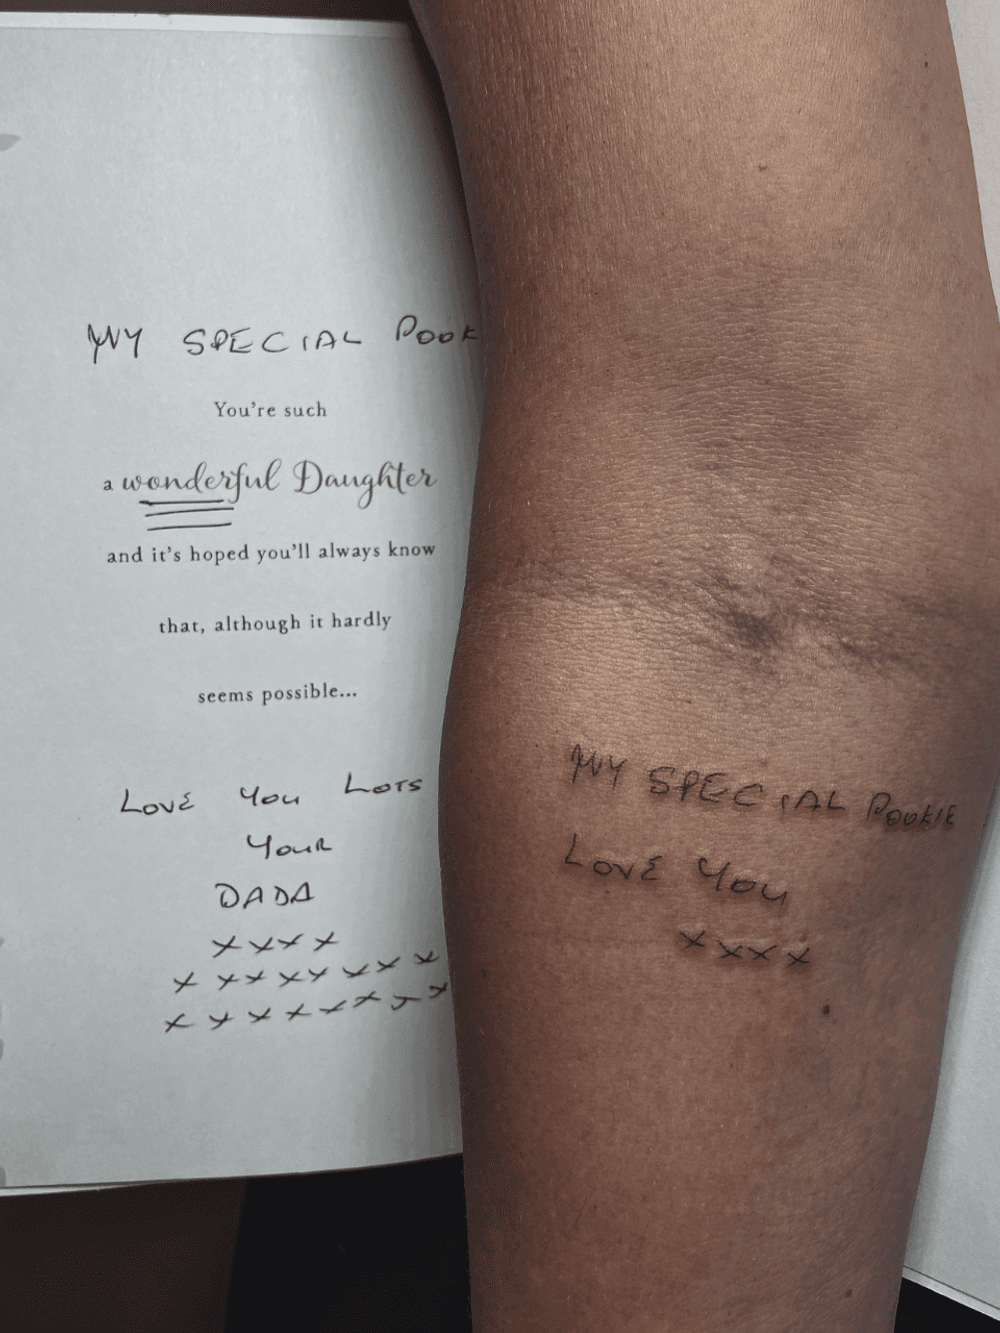 MY SPECIAL POOK
You're such
a wonderful Daughter
and it's hoped you'll always know
that, although it hardly
seems possible...
LOVE YOU LOTS
YOUR
DADA
x x x x
x x x x x x x x
x x x x x x x x
MY SPECIAL POOKIE
LOVE YOU
x x x x